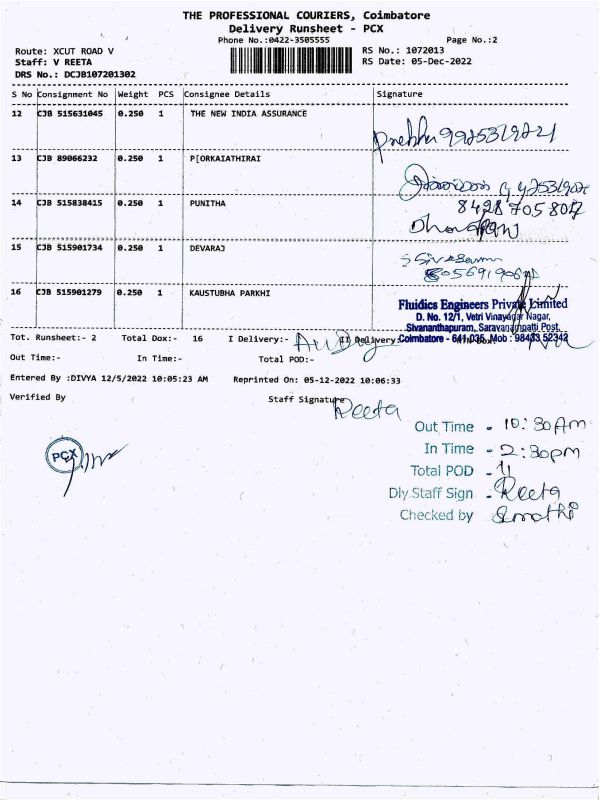 THE PROFESSIONAL COURIERS, Coimbatore
Delivery Runsheet - PCX
Phone No.:0422-3505555 Page No.:2
Route: XCUT ROAD V RS No.: 1072013
Staff: V REETA RS Date: 05-Dec-2022
DRS No.: DCJB107201302
S No Consignment No Weight PCS Consignee Details Signature
12 CJB 515631045 0.250 1 THE NEW INDIA ASSURANCE
13 CJB 89066232 0.250 1 P[ORKAIATHIRAI
14 CJB 515838415 0.250 1 PUNITHA
15 CJB 515901734 0.250 1 DEVARAJ
16 CJB 515901279 0.250 1 KAUSTUBHA PARKHI
Fluidics Engineers Private Limited
D. No. 12/1, Vetri Vinayagar Nagar,
Sivananthapuram, Saravanampatti Post,
Coimbatore - 641 035, Mob : 98433 52342
Tot. Runsheet:- 2 Total Dox:- 16 I Delivery:- II Delivery:
Out Time:- In Time:- Total POD:-
Entered By :DIVYA 12/5/2022 10:05:23 AM Reprinted On: 05-12-2022 10:06:33
Verified By Staff Signature Reeta
Out Time - 10:30Am
In Time - 2:30pm
PCX
Total POD - 11
Dly.Staff Sign - Reeta
Checked by